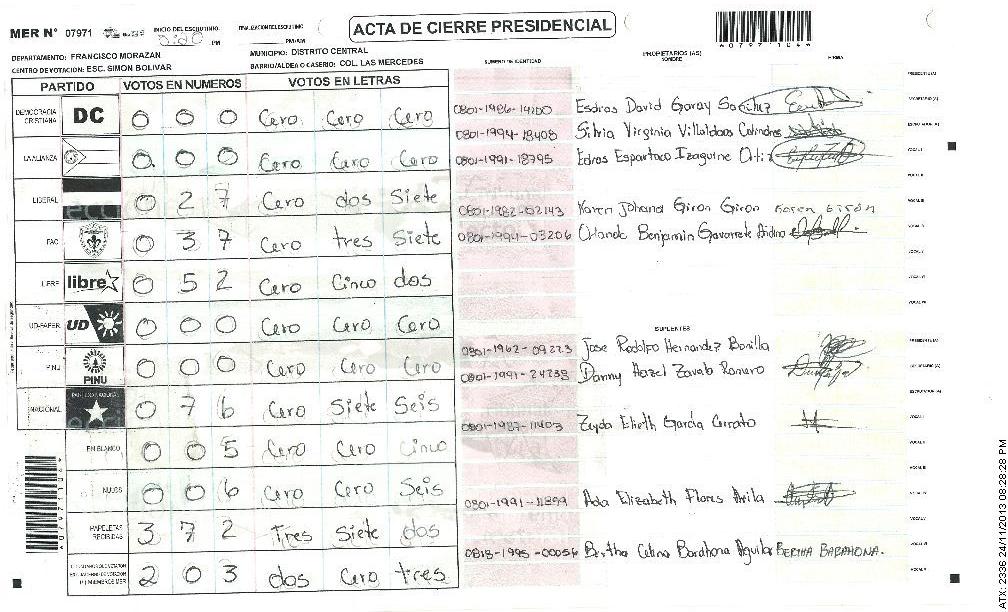 MER N° 07971
INICIO DEL ESCRUTINIO
PM
FINALIZACION DEL ESCRUTINIO
PM/AM
ACTA DE CIERRE PRESIDENCIAL
DEPARTAMENTO: FRANCISCO MORAZAN
MUNICIPIO: DISTRITO CENTRAL
CENTRO DE VOTACION: ESC. SIMON BOLIVAR
BARRIO/ALDEA O CASERIO: COL. LAS MERCEDES
NUMERO DE IDENTIDAD
PROPIETARIOS (AS)
NOMBRE
FIRMA
PARTIDO VOTOS EN NUMEROS VOTOS EN LETRAS
DEMOCRACIA CRISTIANA DC 0 0 0 Cero Cero Cero
LA ALIANZA 0 0 0 Cero Cero Cero
LIBERAL 0 2 7 Cero dos Siete
PAC 0 3 7 Cero tres Siete
LIBRE libre 0 5 2 Cero Cinco dos
UD-FAPER UD 0 0 0 Cero Cero Cero
PINU PINU 0 0 0 Cero Cero Cero
NACIONAL 0 7 6 Cero Siete Seis
EN BLANCO 0 0 5 Cero Cero Cinco
NULOS 0 0 6 Cero Cero Seis
PAPELETAS RECIBIDAS 3 7 2 Tres Siete dos
2 0 3 dos Cero tres
0801-1986-14200 Esdras David Garay Sanchez
0801-1994-18408 Silvia Virginia Villalobos Calindres
0801-1991-18795 Edras Espartaco Izaguirre Ortiz
0801-1982-02143 Karen Johana Giron Giron Karen Girón
0801-1994-03206 Orlando Benjamin Gavarrete
SUPLENTES
0801-1962-09223 Jose Rodolfo Hernandez Bonilla
0801-1991-24238 Danny Hazel Zavala Romero
0801-1987-11403 Zeyda Elieth Garcia Cerrato
0801-1991-11899 Ada Elizabeth Flores Avila
0818-1995-00056 Bertha Celina Barahona Aguilar BERTHA BARAHONA.
PRESIDENTE (A)
SECRETARIO (A)
ESCRUTADOR (A)
VOCAL I
VOCAL II
VOCAL III
VOCAL IV
VOCAL V
VOCAL VI
VOCAL VII
PRESIDENTE (A)
SECRETARIO (A)
ESCRUTADOR (A)
VOCAL I
VOCAL II
VOCAL III
VOCAL IV
VOCAL V
VOCAL VI
ATX: 2336 24/11/2013 08:28:28 PM